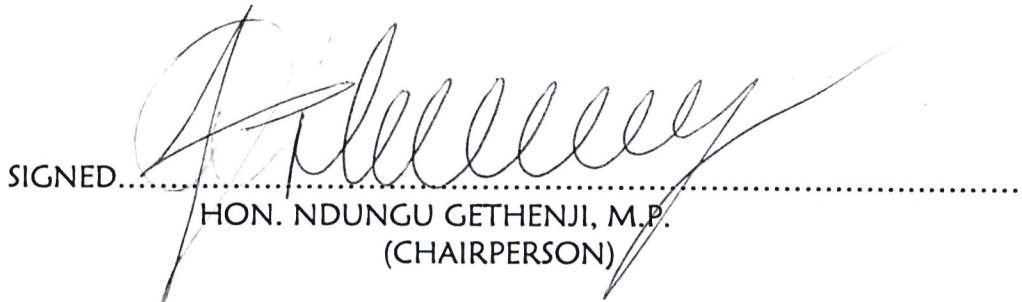 SIGNED...............................................................................................
HON. NDUNGU GETHENJI, M.P.
(CHAIRPERSON)